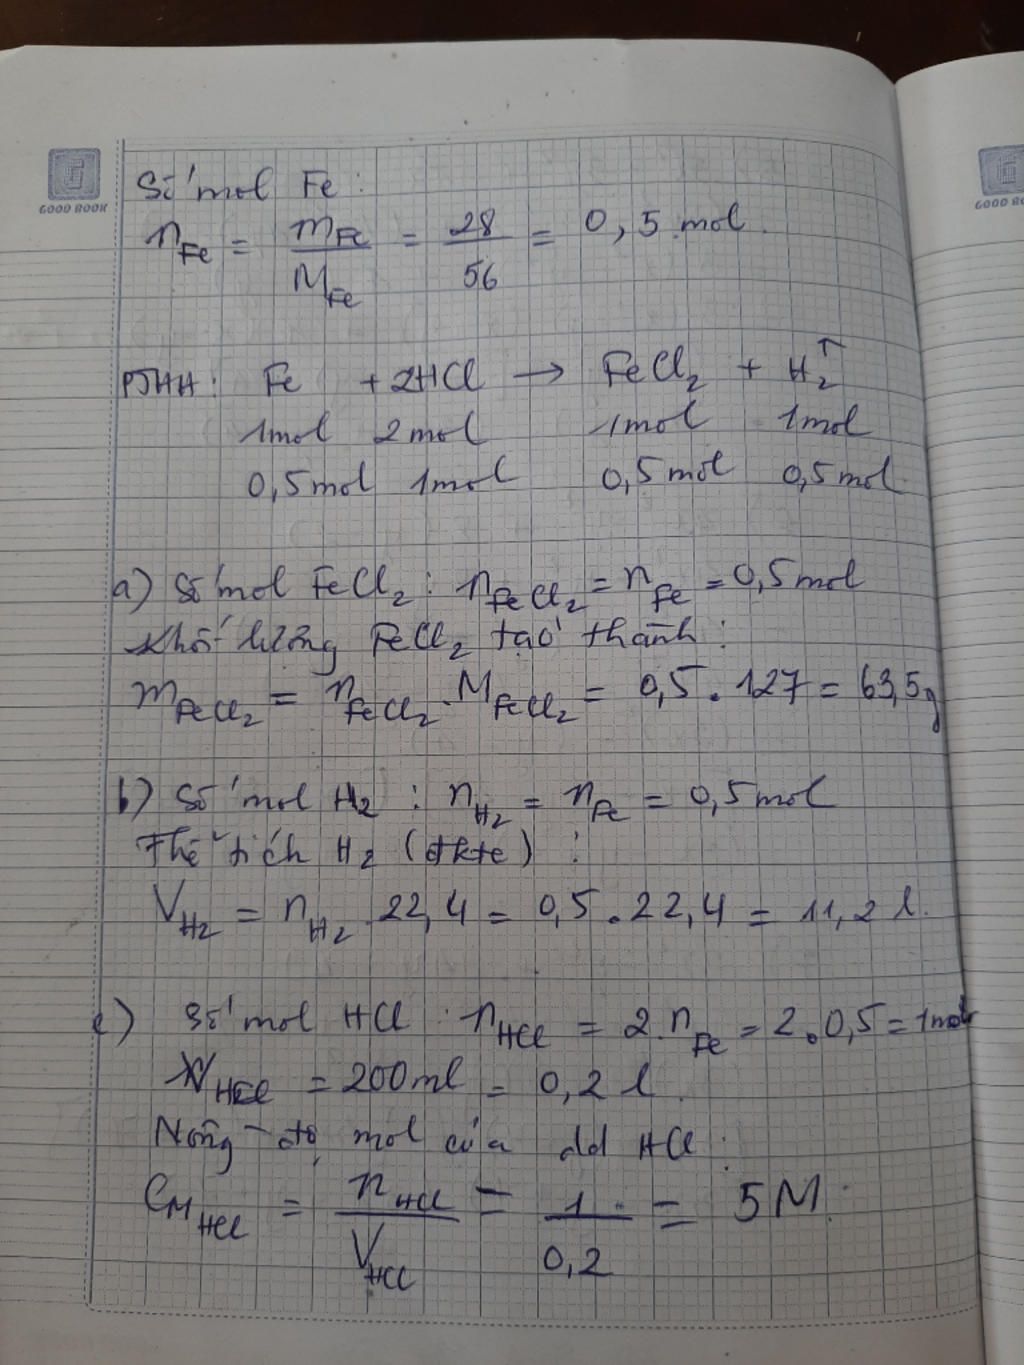 GOOD BOOK
Số mol Fe:
n_Fe = m_Fe / M_Fe = 28 / 56 = 0,5 mol.
PTHH: Fe + 2HCl → FeCl₂ + H₂↑
1mol 2mol 1mol 1mol
0,5mol 1mol 0,5mol 0,5mol.
a) Số mol FeCl₂: n_FeCl₂ = n_Fe = 0,5mol
Khối lượng FeCl₂ tạo thành:
m_FeCl₂ = n_FeCl₂ . M_FeCl₂ = 0,5 . 127 = 63,5g
b) Số mol H₂ : n_H₂ = n_Fe = 0,5mol
Thể tích H₂ (đktc) :
V_H₂ = n_H₂ . 22,4 = 0,5 . 22,4 = 11,2 l.
c) Số mol HCl : n_HCl = 2.n_Fe = 2.0,5 = 1mol
V_HCl = 200ml = 0,2 l.
Nồng độ mol của dd HCl:
C_M HCl = n_HCl / V_HCl = 1 / 0,2 = 5M.